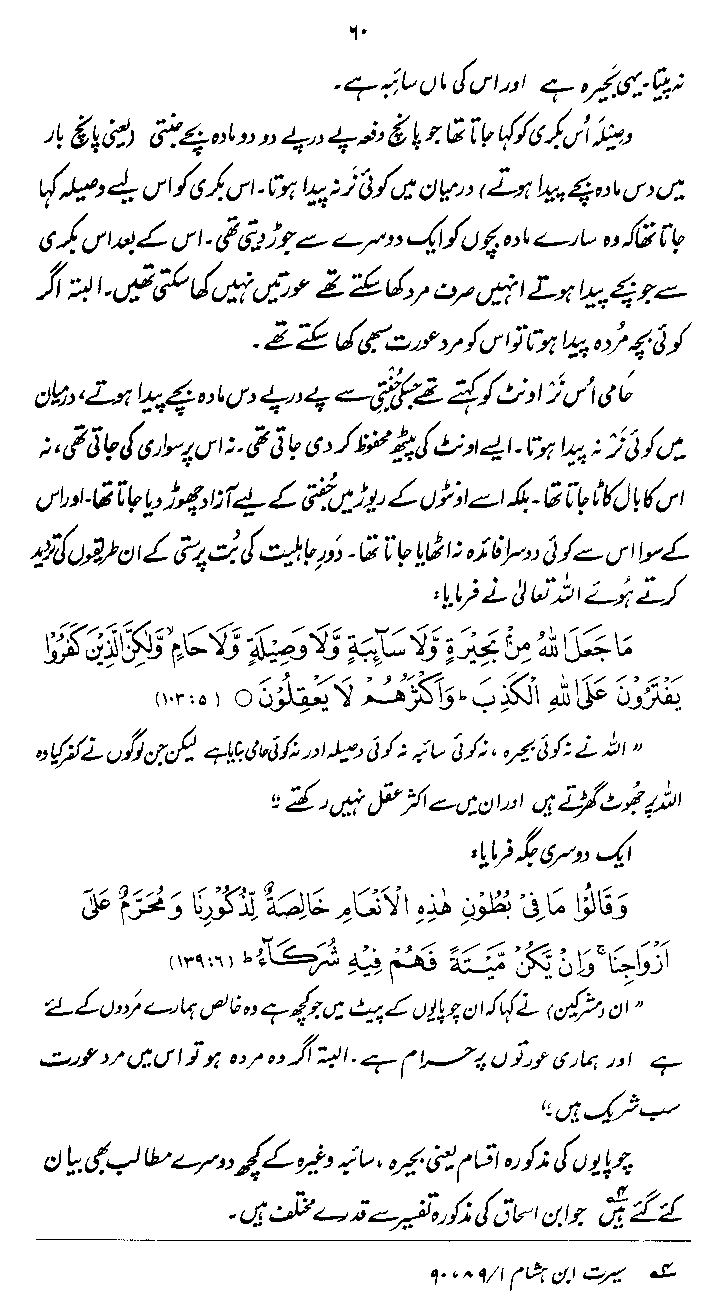 ۶۰
نہ پیتا۔ یہی بَحیرہ ہے اور اس کی ماں سائبہ ہے۔
وصِیْلَہ اُس بکری کو کہا جاتا تھا جو پانچ دفعہ پے درپے دو دو مادہ بچے جنتی (یعنی پانچ بار
میں دس مادہ بچے پیدا ہوتے) درمیان میں کوئی نَر نہ پیدا ہوتا۔ اس بکری کو اس لیے وصیلہ کہا
جاتا تھا کہ وہ سارے مادہ بچوں کو ایک دوسرے سے جوڑ دیتی تھی۔ اس کے بعد اس بکری
سے جو بچے پیدا ہوتے انہیں صرف مرد کھا سکتے تھے عورتیں نہیں کھا سکتی تھیں۔ البتہ اگر
کوئی بچہ مُردہ پیدا ہوتا تو اس کو مرد عورت سبھی کھا سکتے تھے۔
حَامی اُس نَر اونٹ کو کہتے تھے جسکی جُفتی سے پے درپے دس مادہ بچے پیدا ہوتے، درمیان
میں کوئی نَر نہ پیدا ہوتا۔ ایسے اونٹ کی پیٹھ محفوظ کر دی جاتی تھی۔ نہ اس پر سواری کی جاتی تھی، نہ
اس کا بال کاٹا جاتا تھا۔ بلکہ اسے اونٹوں کے ریوڑ میں جُفتی کے لیے آزاد چھوڑ دیا جاتا تھا۔ اور اس
کے سوا اس سے کوئی دوسرا فائدہ نہ اٹھایا جاتا تھا۔ دَورِ جاہلیت کی بُت پرستی کے ان طریقوں کی تردید
کرتے ہُوئے اللہ تعالیٰ نے فرمایا:
مَا جَعَلَ اللهُ مِنْۢ بَحِيْرَةٍ وَّلَا سَآئِبَةٍ وَّلَا وَصِيْلَةٍ وَّلَا حَامٍ ۙ وَّلٰكِنَّ الَّذِيْنَ كَفَرُوْا
يَفْتَرُوْنَ عَلَى اللهِ الْكَذِبَ ؕ وَاَكْثَرُهُمْ لَا يَعْقِلُوْنَ ○ (۵ : ۱۰۳)
” اللہ نے نہ کوئی بحیرہ ، نہ کوئی سائبہ نہ کوئی وصیلہ اور نہ کوئی حامی بنایا ہے لیکن جن لوگوں نے کفر کیا وہ
اللہ پر جھوٹ گھڑتے ہیں اور ان میں سے اکثر عقل نہیں رکھتے “
ایک دوسری جگہ فرمایا:
وَقَالُوْا مَا فِيْ بُطُوْنِ هٰذِهِ الْاَنْعَامِ خَالِصَةٌ لِّذُكُوْرِنَا وَ مُحَرَّمٌ عَلٰٓى
اَزْوَاجِنَا ۚ وَاِنْ يَّكُنْ مَّيْتَةً فَهُمْ فِيْهِ شُرَكَآءُ ؕ (۶ : ۱۳۹)
” ان (مشرکین) نے کہا کہ ان چوپایوں کے پیٹ میں جو کچھ ہے وہ خالص ہمارے مَردوں کے لئے
ہے اور ہماری عورتوں پر حرام ہے۔ البتہ اگر وہ مردہ ہو تو اس میں مرد عورت
سب شریک ہیں “
چوپایوں کی مذکورہ اقسام یعنی بحیرہ ، سائبہ وغیرہ کے کچھ دوسرے مطالب بھی بیان
کئے گئے ہیں ۴ جو ابن اسحاق کی مذکورہ تفسیر سے قدرے مختلف ہیں۔
۴ سیرت ابن ہشام ۱/ ۸۹ ، ۹۰